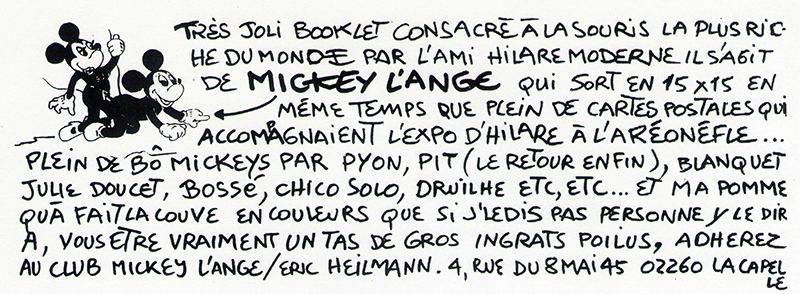 TRÈS JOLI BOOKLET CONSACRÈ À LA SOURIS LA PLUS RIC-
HE DU MONDE PAR L'AMI HILARE MODERNE IL S'AGIT
DE MICKEY L'ANGE QUI SORT EN 15X15 EN
MÊME TEMPS QUE PLEIN DE CARTES POSTALES QUI
ACCOMPAGNAIENT L'EXPO D'HILARE À L'ARÉONÉFLE...
PLEIN DE BÔ MICKEYS PAR PYON, PIT (LE RETOUR ENFIN), BLANQUET
JULIE DOUCET, BOSSÉ, CHICO SOLO, DRUILHE ETC, ETC... ET MA POMME
QU'A FAIT LA COUVE EN COULEURS QUE SI J'LE DIS PAS PERSONNE Y LE DIR
A, VOUS ETRE VRAIMENT UN TAS DE GROS INGRATS POILUS, ADHEREZ
AU CLUB MICKEY L'ANGE/ERIC HEILMANN. 4, RUE DU 8 MAI 45 02260 LA CAPEL
LE